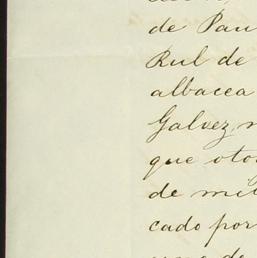 de Pau
Rul de
albacea
Galvez,
que oto
de mi
cado por
de